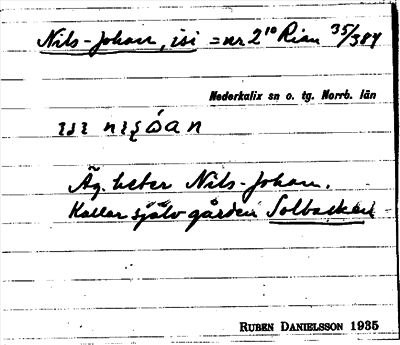 Nils-Johan, isi = nr 2¹⁰ Rian 35/584
Nederkalix sn o. tg. Norrb. län
ɪsɪ nɪʂóan
Äg. heter Nils-Johan.
Kallar själv gården Solbacken
RUBEN DANIELSSON 1935